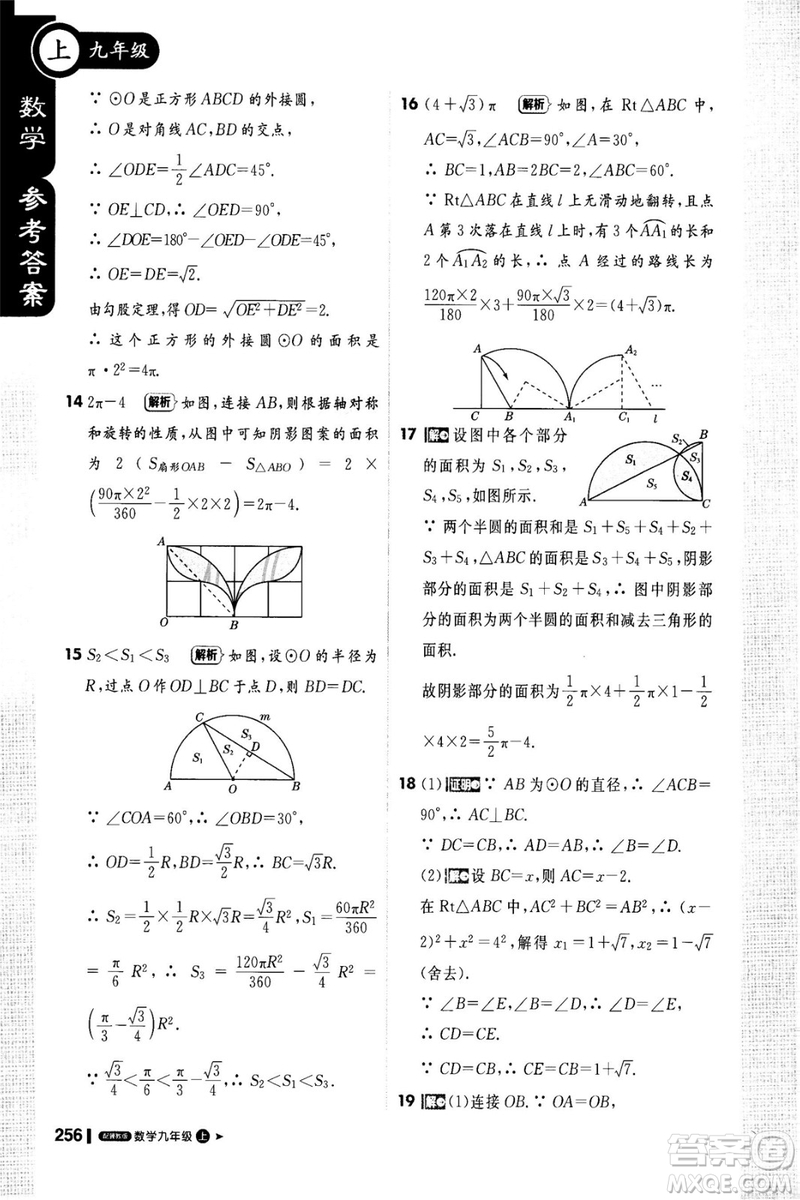 上 九年级
数学 参考答案
∵ ⊙O是正方形ABCD的外接圆,
∴ O是对角线AC,BD的交点,
∴ ∠ODE=1/2∠ADC=45°.
∵ OE⊥CD,∴ ∠OED=90°,
∴ ∠DOE=180°-∠OED-∠ODE=45°,
∴ OE=DE=√2.
由勾股定理,得OD=√(OE²+DE²)=2,
∴ 这个正方形的外接圆⊙O的面积是
π·2²=4π.
14 2π-4 解析 如图,连接AB,则根据轴对称
和旋转的性质,从图中可知阴影图案的面积
为 2(S扇形OAB - S△ABO) = 2 ×
(90π×2²/360 - 1/2×2×2)=2π-4.
A
O B
15 S₂<S₁<S₃ 解析 如图,设⊙O的半径为
R,过点O作OD⊥BC于点D,则BD=DC.
C m
S₃
S₁ S₂ D
A O B
∵ ∠COA=60°,∴ ∠OBD=30°,
∴ OD=1/2R,BD=√3/2R,∴ BC=√3R,
∴ S₂=1/2×1/2R×√3R=√3/4R²,S₁=60πR²/360
=π/6R²,∴ S₃=120πR²/360-√3/4R²=
(π/3-√3/4)R².
∵ √3/4<π/6<π/3-√3/4,∴ S₂<S₁<S₃.
16 (4+√3)π 解析 如图,在Rt△ABC中,
AC=√3,∠ACB=90°,∠ABC=60°,
∴ BC=1,AB=2BC=2,∠ABC=60°.
∵ Rt△ABC在直线l上无滑动地翻转,且点
A第3次落在直线l上时,有3个AA₁的长和
2个A₁A₂的长,∴ 点A经过的路线长为
120π×2/180×3+90π×√3/180×2=(4+√3)π.
A
C B A₁ C₁ l
17 解 设图中各个部分
的面积为S₁,S₂,S₃,
S₄,S₅,如图所示.
S₂ B
S₁ S₃
S₄
S₅
A C
∵ 两个半圆的面积和是S₁+S₅+S₄+S₂+
S₃+S₄,△ABC的面积是S₃+S₄+S₅,阴影
部分的面积是S₁+S₂+S₄,∴ 图中阴影部
分的面积为两个半圆的面积和减去三角形的
面积.
故阴影部分的面积为1/2π×4+1/2π×1-1/2
×4×2=5/2π-4.
18 (1)证明 ∵ AB为⊙O的直径,∴ ∠ACB=
90°,∴ AC⊥BC.
∵ DC=CB,∴ AD=AB,∴ ∠B=∠D.
(2)解 设BC=x,则AC=x-2.
在Rt△ABC中,AC²+BC²=AB²,∴ (x-
2)²+x²=4²,解得x₁=1+√7,x₂=1-√7
(舍去).
∵ ∠B=∠E,∠B=∠D,∴ ∠D=∠E,
∴ CD=CE.
∵ CD=CB,∴ CE=CB=1+√7.
19 解 (1)连接OB.∵ OA=OB,
256 数学九年级 上
答案圈
MXQE.COM